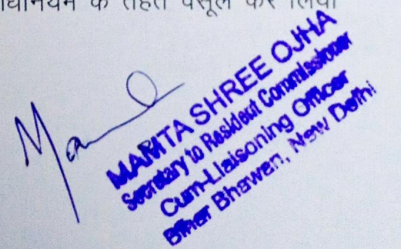 के तहत वसूल कर लिया
MARITA SHREE OJHA
Secretary to Resident Commissioner
Cum-Liaisoning Officer
Bihar Bhawan, New Delhi